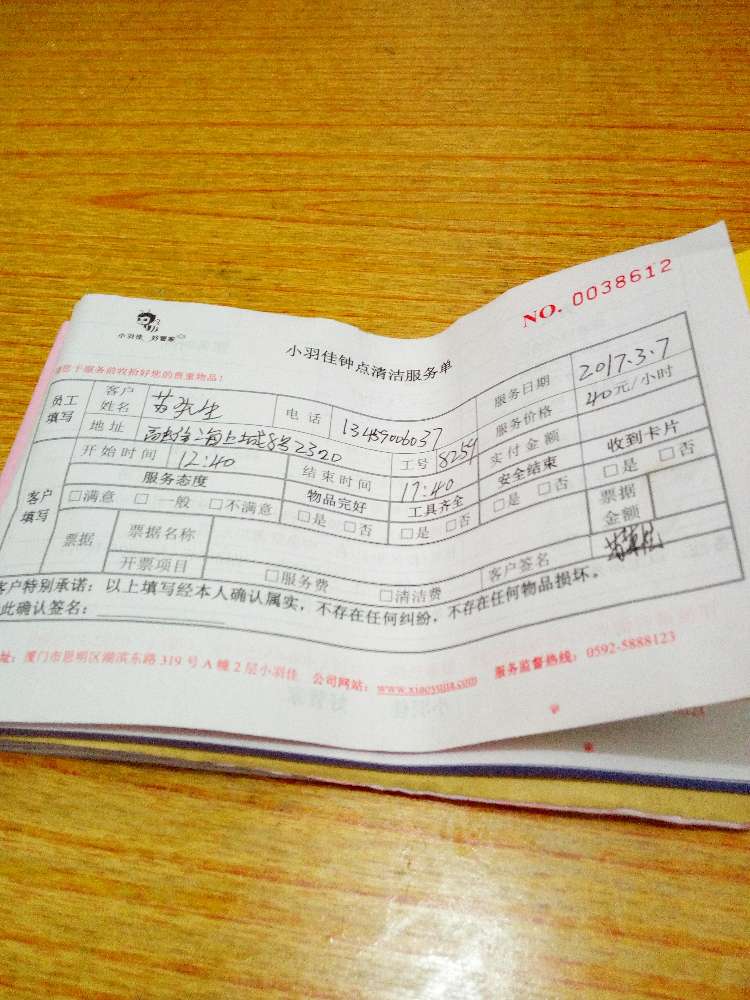 小羽佳 好管家
NO. 0038612
小羽佳钟点清洁服务单
您于服务前收拾好您的贵重物品!
员工填写 客户姓名 苏先生 电话 13459006037 服务日期 2017.3.7
地址 海上城8号2320 工号 8259 服务价格 40元/小时
客户填写 开始时间 12:40 结束时间 17:40 实付金额
服务态度 物品完好 工具齐全 安全结束 收到卡片
□满意 □一般 □不满意 □是 □否 □是 □否 □是 □否 □是 □否
票据 票据名称 票据金额
开票项目 □服务费 □清洁费 客户签名
客户特别承诺：以上填写经本人确认属实，不存在任何纠纷，不存在任何物品损坏。
此确认签名：
址：厦门市思明区湖滨东路 319 号 A 幢 2 层小羽佳 公司网站：www.xiaoyujia.com 服务监督热线：0592-5888123